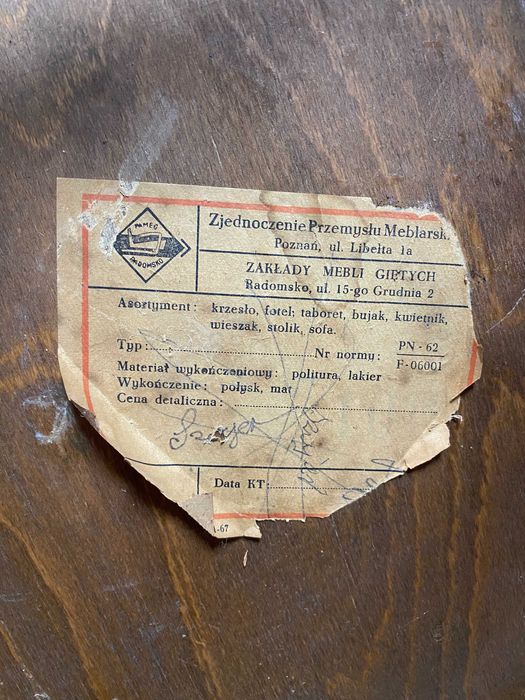 PAMEG
RADOMSKO
Zjednoczenie Przemysłu Meblarsk.
Poznań, ul. Libelta 1a
ZAKŁADY MEBLI GIĘTYCH
Radomsko, ul. 15-go Grudnia 2
Asortyment: krzesło, fotel, taboret, bujak, kwietnik,
wieszak, stolik, sofa.
Typ: Nr normy: PN - 62
F-06001
Materiał wykończeniowy: politura, lakier
Wykończenie: połysk, mat
Cena detaliczna:
Data KT:
-67